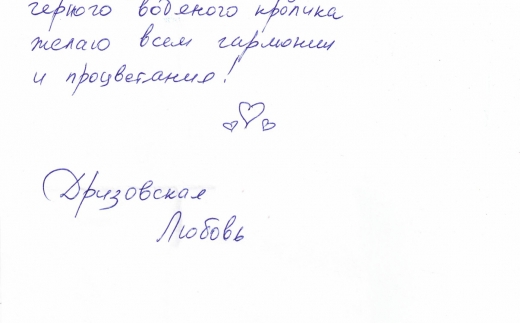 черного водяного кролика
желаю всем гармонии
и процветания!
Дризовская
Любовь